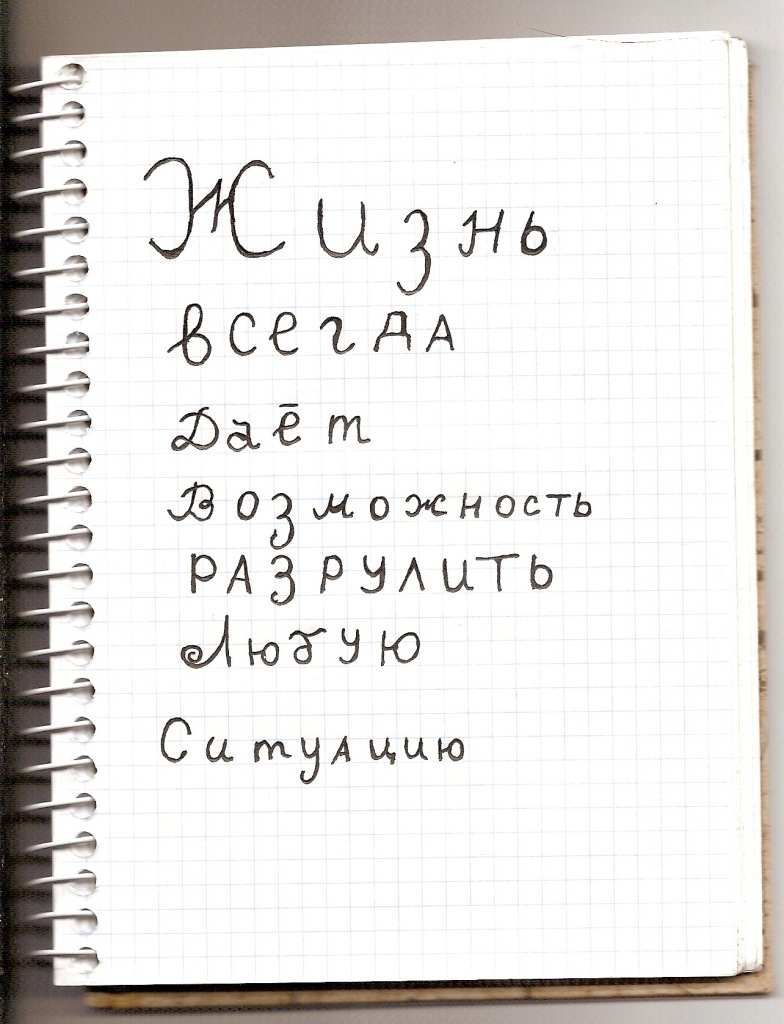 Жизнь
всегдА
Даёт
Возможность
РАЗРУЛИТЬ
Любую
СитуАцию